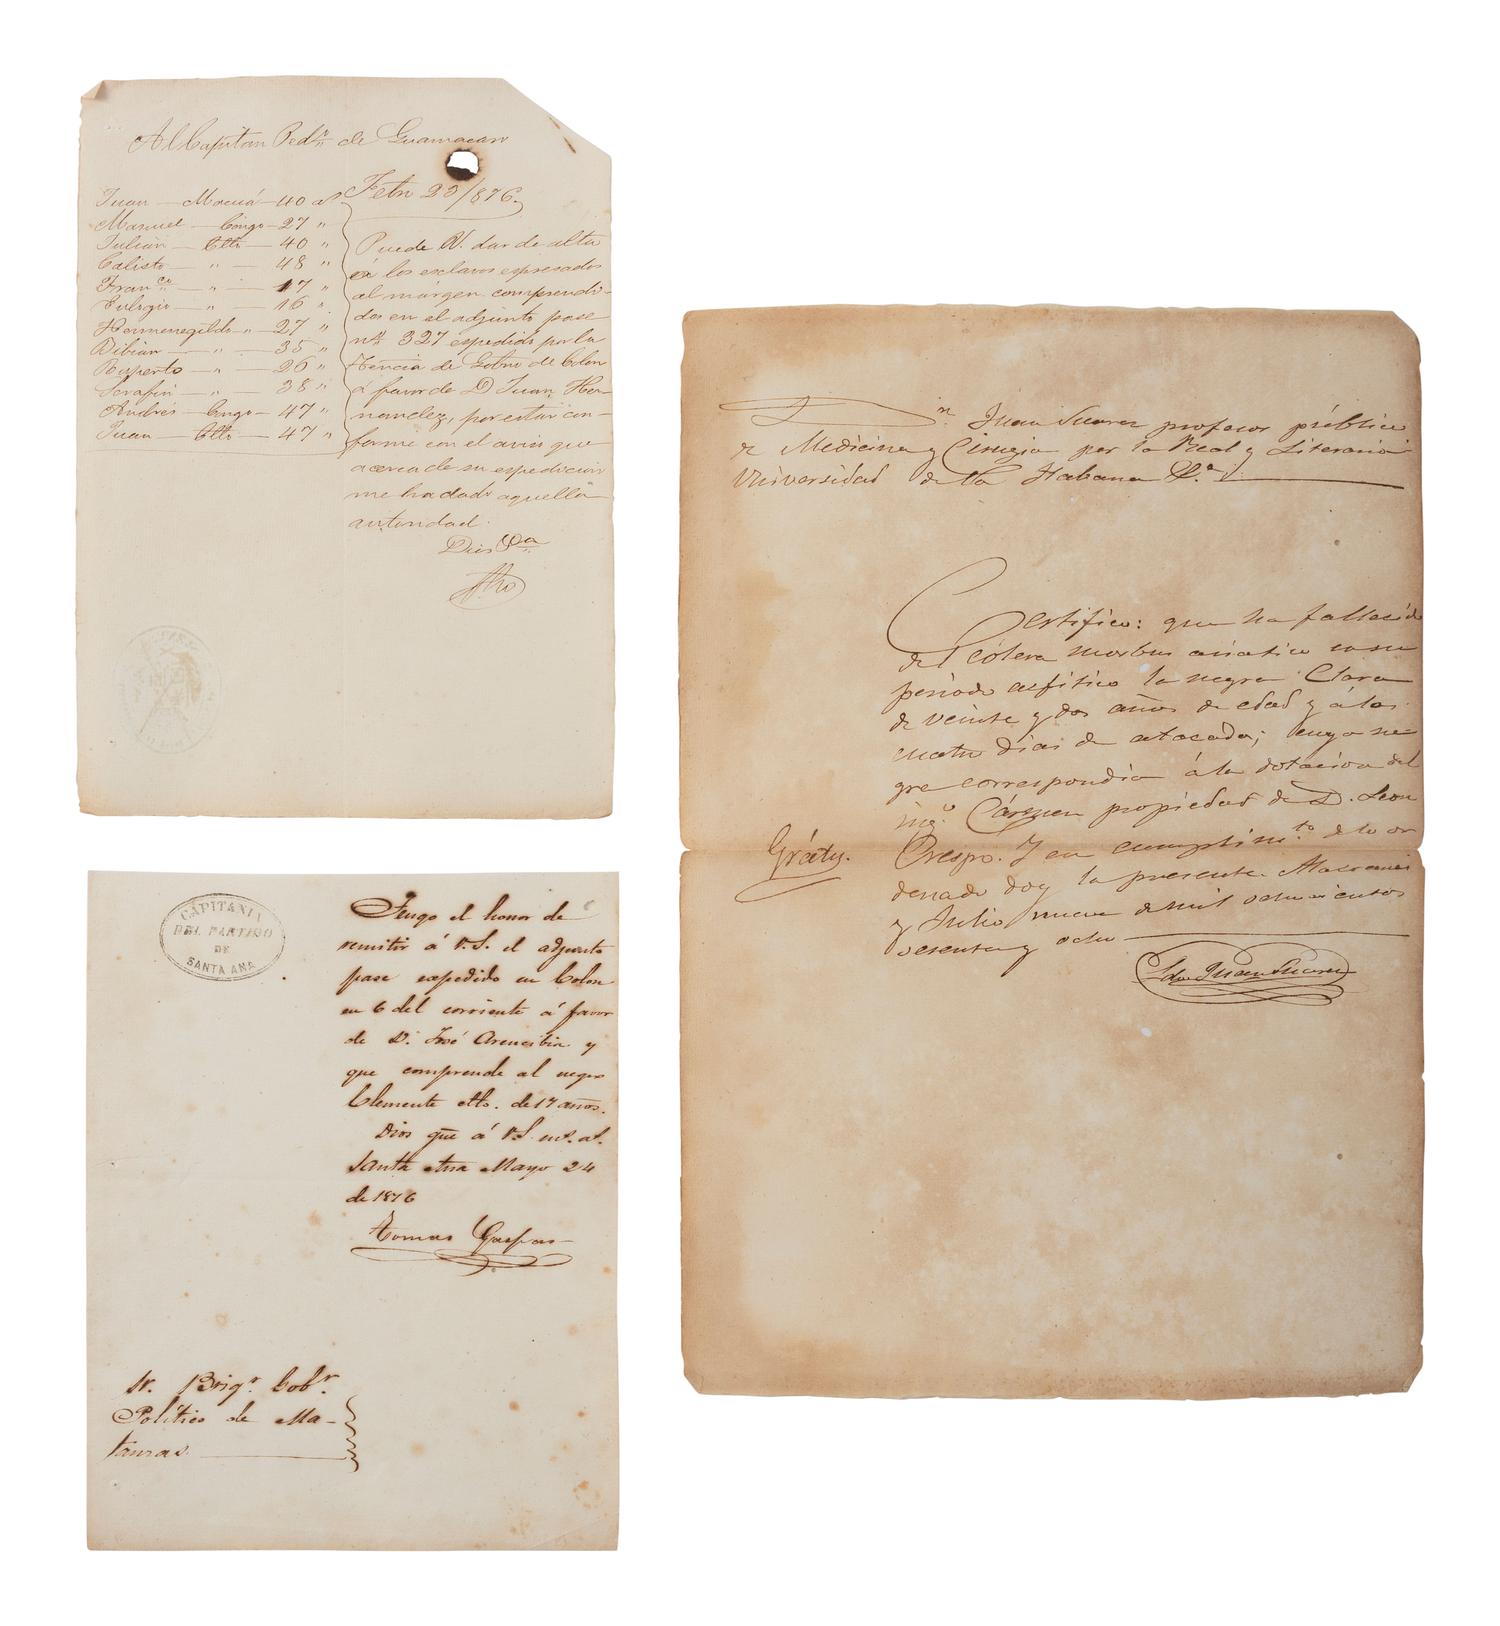 Al Capitan Ped.º de Guamacaro
Juan — Macuá — 40 a.s
Manuel — Congo — 27 "
Julian — Cllo — 40 "
Calisto — " — 48 "
Fran.co — " — 17 "
Eulogio — " — 16 "
Hermenegildo — " — 27 "
Bibian — " — 35 "
Ruperto — " — 26 "
Serafin — " — 38 "
Andrés — Congo — 47 "
Juan — Cllo — 47 "
Febr 23/876.
Puede V. dar de alta
á los esclavos espresados
al márgen comprendi-
dos en el adjunto pase
nº 327 espedido por la
Tencia de Gobno de Colon
á favor de D Juan Her-
nandez, por estar con-
forme con el aviso que
acerca de su espedicion
me ha dado aquella
autoridad.
Dios
CAPITANIA
DEL PARTIDO
DE
SANTA ANA
Tengo el honor de
remitir á V.S. el adjunto
pase expedido en Colon
en 6 del corriente á favor
de D. José Arencibia y
que comprende al negro
Clemente cllo. de 17 años.
Dios gue á V.S. ms. as.
Santa Ana Mayo 24
de 1876
Tomas Gaspar
Sr. Brigr. Gobr.
Político de Ma-
tanzas
Juan Suarez profesor público
de Medicina y Cirugia por la Real y Literaria
Universidad de la Habana &.a
Certifico: que ha fallecido
del cólera morbus asiatico en su
período asfitico la negra Clara
de veinte y dos años de edad y á los
cuatro dias de atacada; cuya ne
gra correspondia á la dotacion del
ing.o Cármen propiedad de D. Leon
Crespo. Y en cumplim.to de lo or
denado doy la presente. Macuriges
y Julio nueve de mil ochocientos
sesenta y ocho
Grátis.
Ldo Juan Suarez